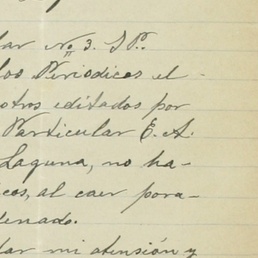 lar No 3. S.P.
los Periodicos el-
otros editados por
Particular E. A.
Laguna, no ha-
cos, al caer para-
denado.
dar mi atensión y